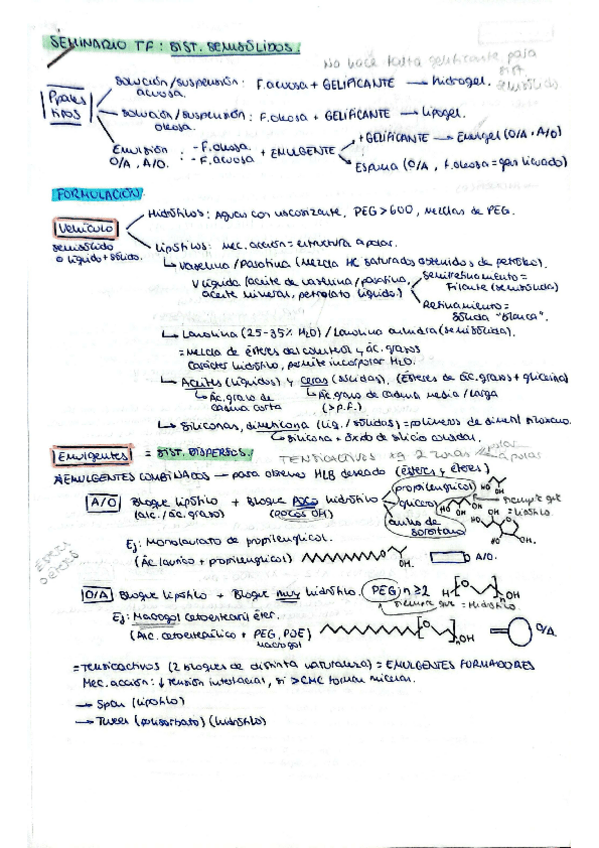 SEMINARIO TF: SIST. SEMISÓLIDOS.
No hace falta gelificante para
SIST
semisólidos
Solución/suspensión: F. acuosa + GELIFICANTE → hidrogel.
acuosa.
TIPOS
Solución/suspensión: F. oleosa + GELIFICANTE → lipogel.
oleosa.
Emulsión : - F. oleosa. + EMULGENTE
O/A, A/O. : - F. acuosa
+ GELIFICANTE → Emulgel (O/A, A/O)
Espuma (O/A, f. oleosa = gas licuado)
FORMULACIÓN
Vehículo
semisólido
o líquido + sólido.
Hidrófilos: Aguas con viscosizante, PEG > 600, mezclas de PEG.
Lipófilos: Mec. acción = estructura apolar.
↳ Vaselina / Parafina (Mezcla HC saturados obtenidos de petróleo).
V líquida (aceite de vaselina / parafina,
aceite mineral, petrolato líquido).
Semirrefinamiento =
Filante (semisólida)
Refinamiento =
sólida "blanca".
↳ Lanolina (25-35% H2O) / Lanolina anhidra (semisólida).
= Mezcla de ésteres del colesterol y ác. grasos
carácter hidrófilo, permite incorporar H2O.
↳ Aceites (líquidos) y ceras (sólidas). (Ésteres de ác. grasos + glicerina)
↳ Ác. graso de
cadena corta
↳ Ác. graso de cadena media / larga
(> p.f.)
↳ Siliconas, dimeticona (líq. / sólidas) = polímeros de dimetil siloxano.
↳ silicona + óxido de silicio coloidal.
Emulgentes = SIST. DISPERSOS.
TENSIOACTIVOS xq 2 zonas polar
apolares
EMULGENTES COMBINADOS — para obtener HLB deseado (ésteres y éteres)
A/O Bloque lipófilo + Bloque poco hidrófilo
(alc. / ác. graso) (pocos OH)
propilenglicol
glicerol
anillo de
sorbitano
HO OH
siempre que
= lipófilo.
Ej: Monolaurato de propilenglicol.
(Ác. laurico + propilenglicol) OH. A/O.
ésteres
éteres
O/A Bloque lipófilo + Bloque muy hidrófilo (PEG) n≥2 H [O ]n OH
siempre que = Hidrófilo.
Ej: Macrogol cetoestearil éter.
(Alc. cetoestearílico + PEG, POE) [O ]n OH = O/A
macrogol
= Tensioactivos (2 bloques de distinta naturaleza) = EMULGENTES FORMADORES
Mec. acción: ↓ tensión interfacial, si > CMC forman micelas.
→ Span (lipófilo)
→ Tween (polisorbato) (hidrófilo)